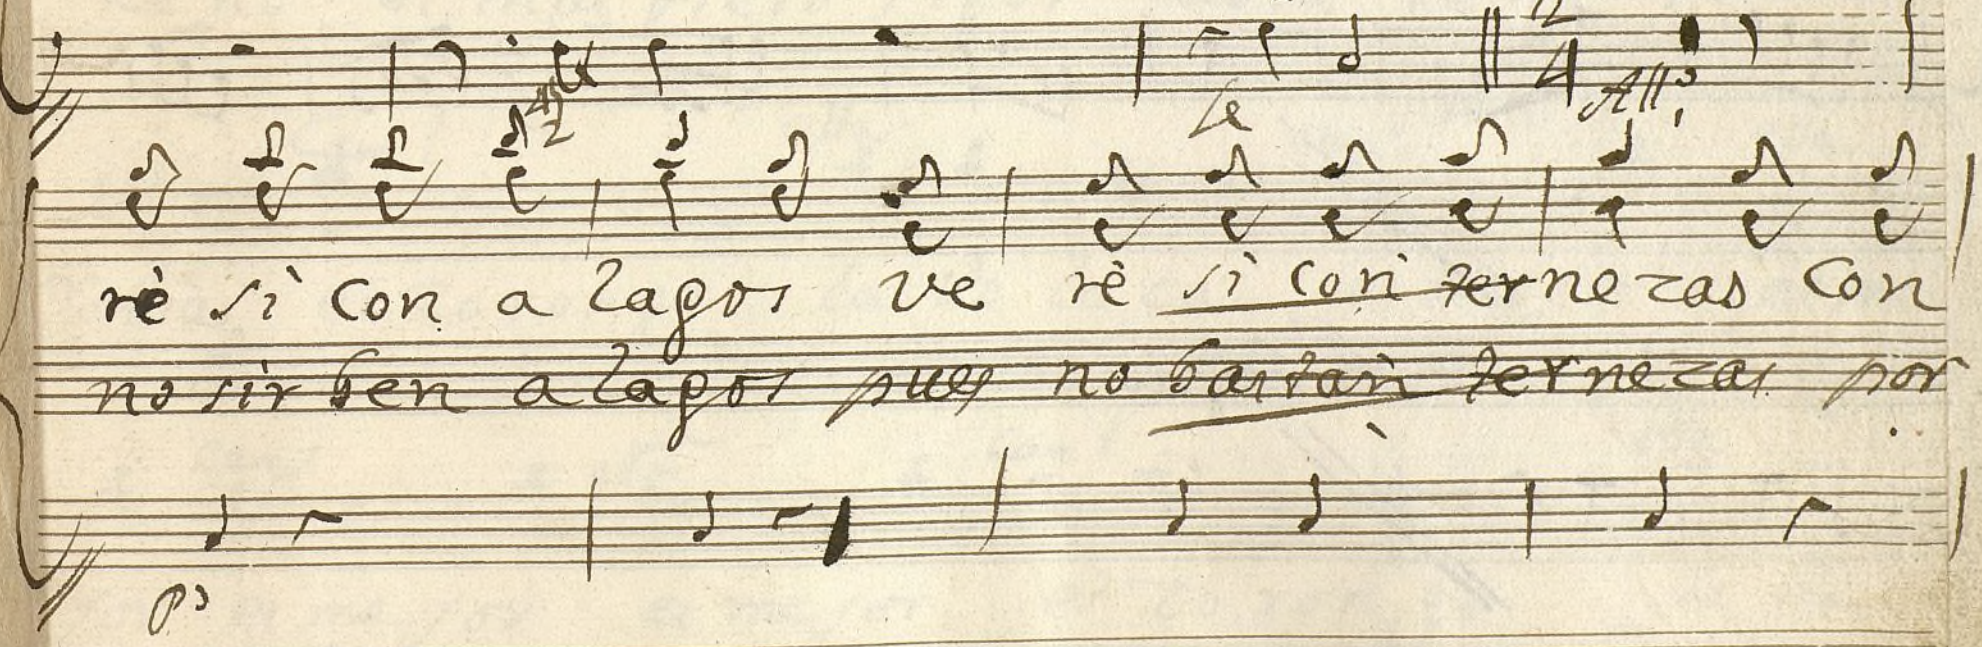 2
4 Allº
Le
rè sì con a lagos ve rè sì con ter ne zas con
no sir ben a lagos pues no bastan ter ne zas por
pº